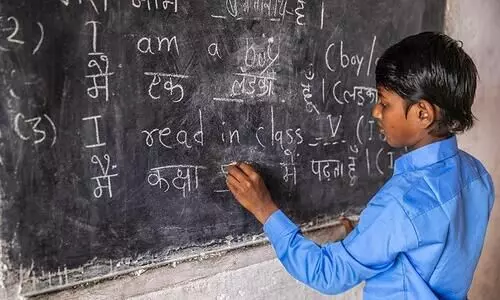 नाम है।
2) I am a boy (boy/
मैं एक लड़का हूँ। (लड़का
(3) I read in class V (
मैं कक्षा में पढ़ता हूँ। (